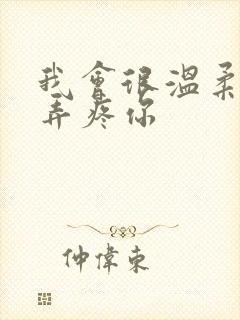 我會很溫柔
弄疼你
仲偉東